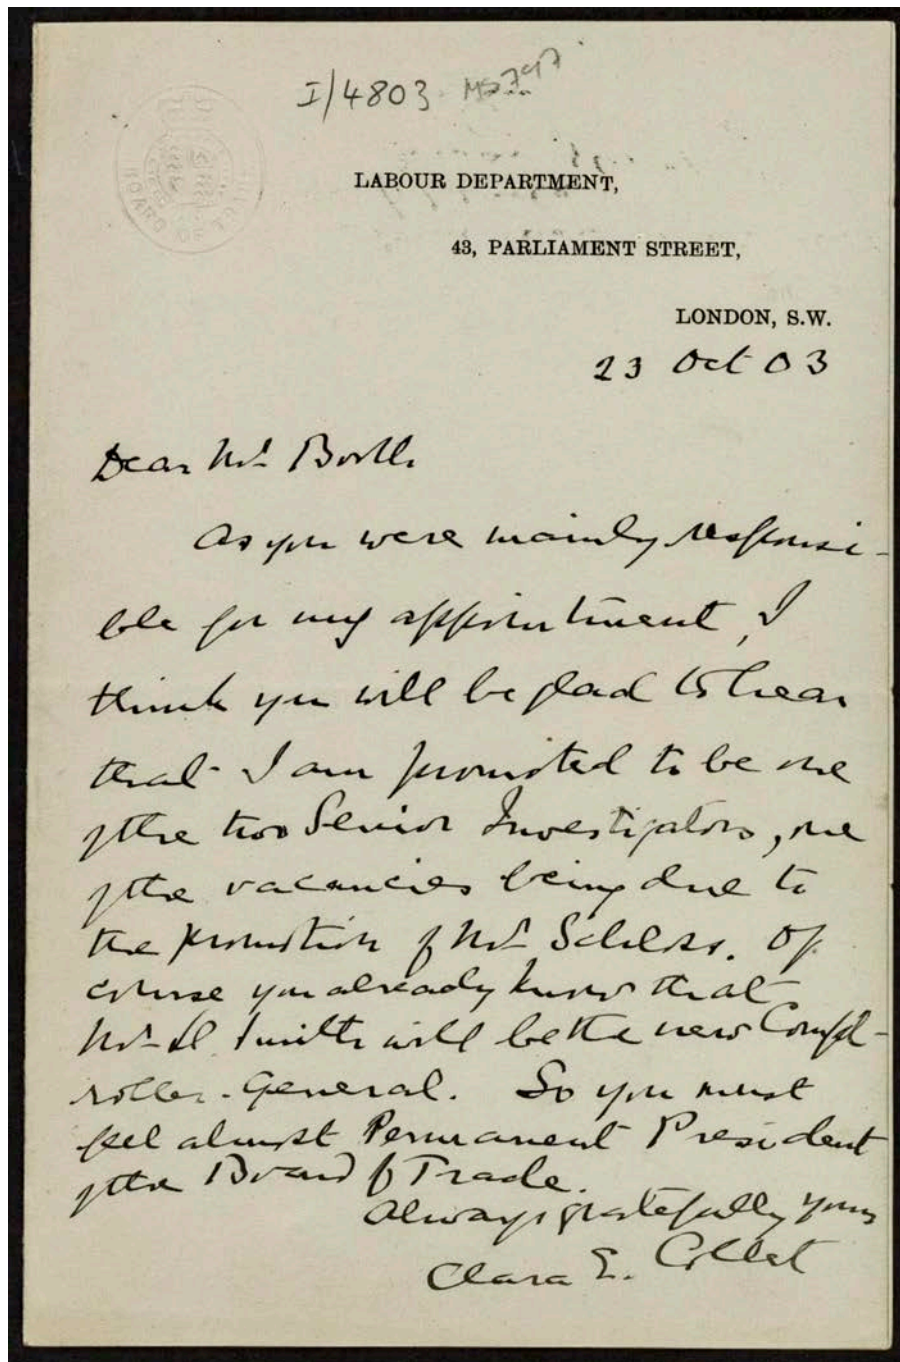 I/4803 MS 797
BOARD OF TRADE
LABOUR DEPARTMENT,
43, PARLIAMENT STREET,
LONDON, S.W.
23 Oct 03
Dear Mr Booth
As you were mainly responsi-
ble for my appointment, I
think you will be glad to hear
that I am promoted to be one
of the two Senior Investigators, one
of the vacancies being due to
the promotion of Mr Schloss. Of
course you already know that
Mr Ll. Smith will be the new Compt-
roller-General. So you must
feel almost Permanent President
of the Board of Trade.
Always gratefully yours
Clara E. Collet